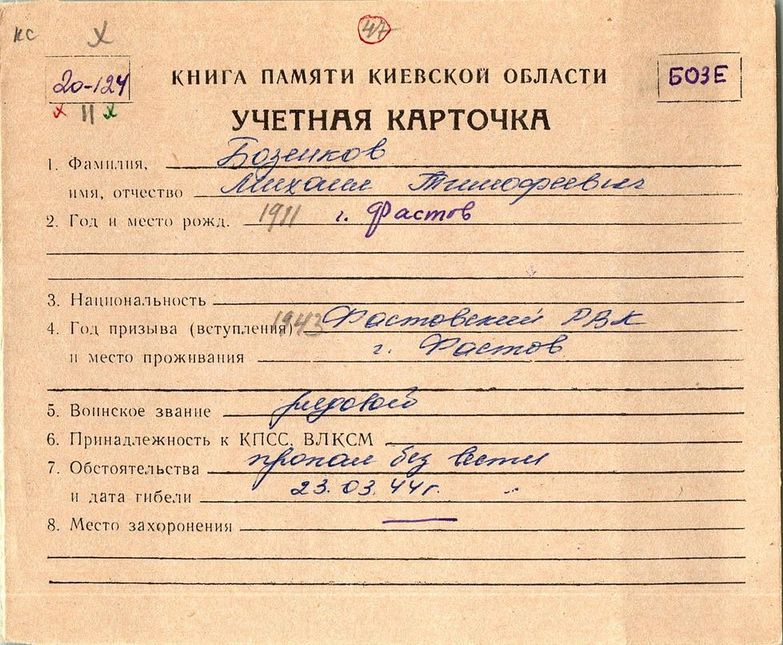 кс х 47
20-124 КНИГА ПАМЯТИ КИЕВСКОЙ ОБЛАСТИ БОЗЕ
х II х
УЧЕТНАЯ КАРТОЧКА
1. Фамилия, Бозенков
имя, отчество Михаил Тимофеевич
2. Год и место рожд. 1911 г. Фастов
3. Национальность
4. Год призыва (вступления) 1943 Фастовский РВК
и место проживания г. Фастов
5. Воинское звание рядовой
6. Принадлежность к КПСС, ВЛКСМ
7. Обстоятельства пропал без вести
и дата гибели 23.03.44г.
8. Место захоронения —